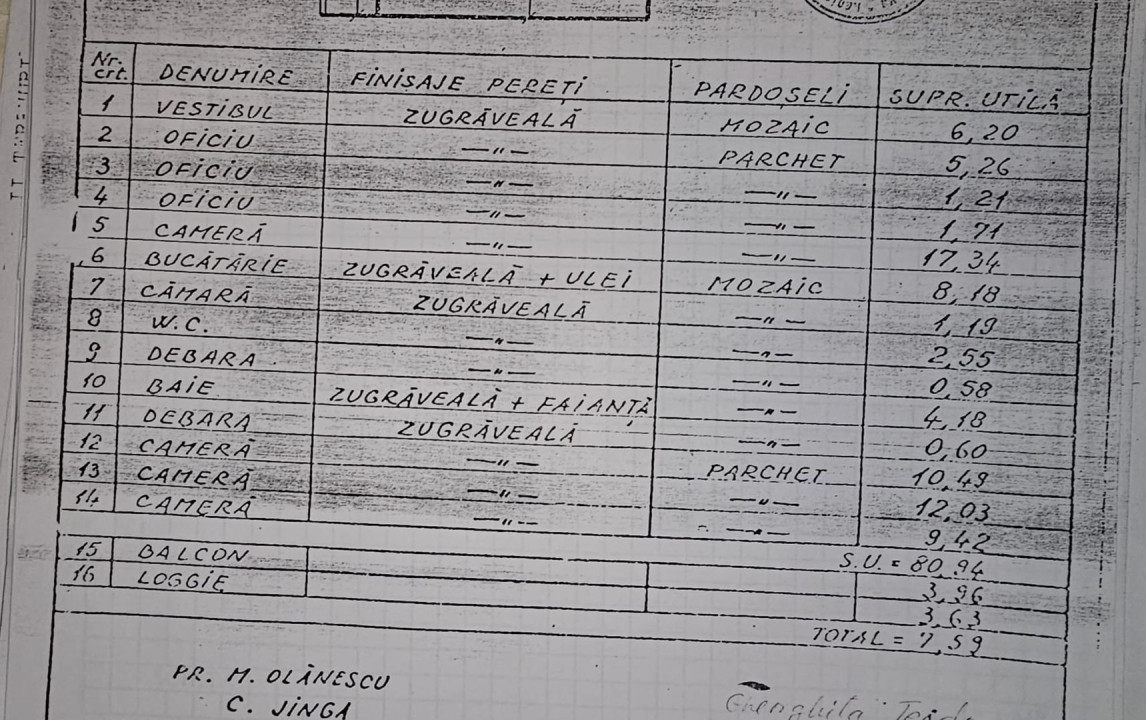 Nr. crt. DENUMIRE FINISAJE PEREȚI PARDOSELI SUPR. UTILĂ
1 VESTIBUL ZUGRĂVEALĂ MOZAIC 6,20
2 OFICIU —"— PARCHET 5,26
3 OFICIU —"— —"— 1,21
4 OFICIU —"— —"— 1,71
5 CAMERĂ —"— —"— 17,34
6 BUCĂTĂRIE ZUGRĂVEALĂ + ULEI MOZAIC 8,18
7 CĂMARĂ ZUGRĂVEALĂ —"— 1,19
8 W.C. —"— —"— 2,55
9 DEBARA —"— —"— 0,58
10 BAIE ZUGRĂVEALĂ + FAIANȚĂ —"— 4,18
11 DEBARA ZUGRĂVEALĂ —"— 0,60
12 CAMERĂ —"— PARCHET 10,49
13 CAMERĂ —"— —"— 12,03
14 CAMERĂ —"— —"— 9,42
S.U. = 80,94
15 BALCON 3,96
16 LOGGIE 3,63
TOTAL = 7,59
PR. M. OLĂNESCU
C. JINGA